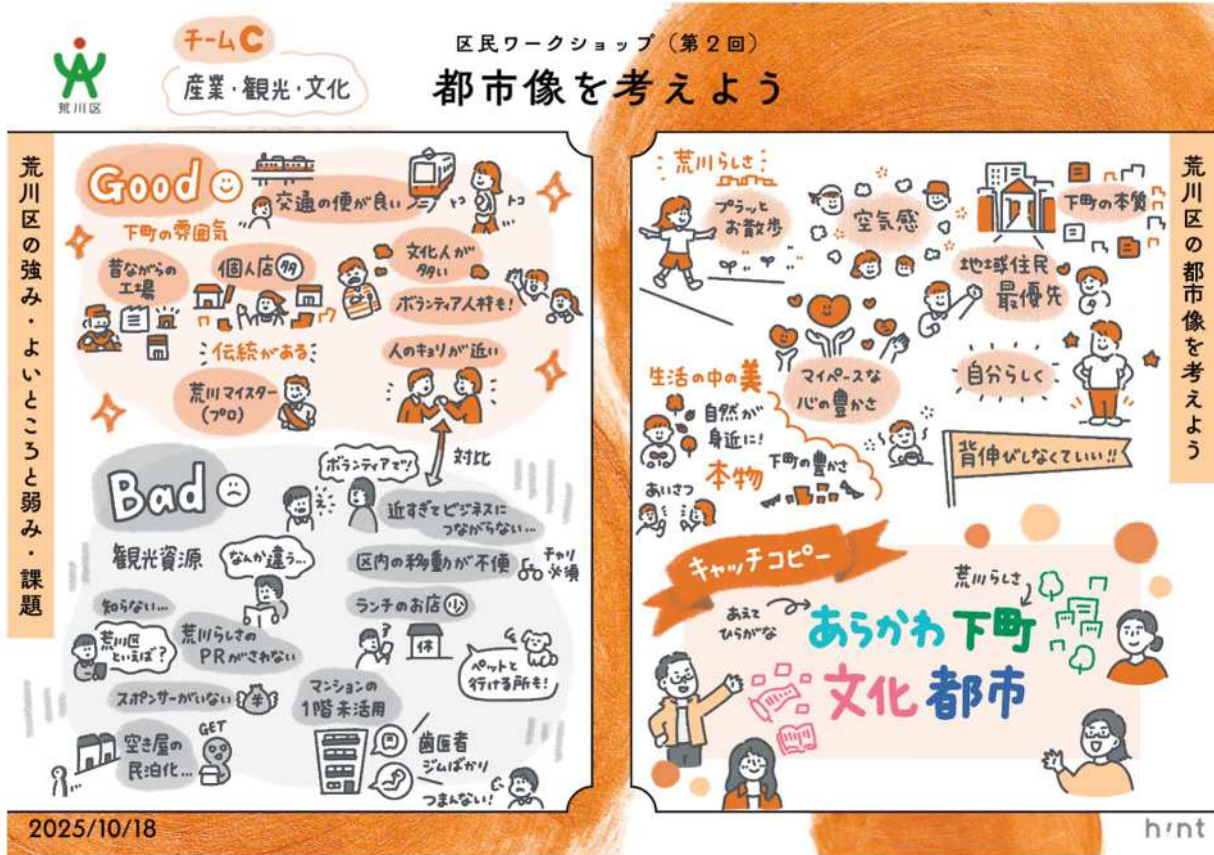 荒川区
チームC
産業・観光・文化
区民ワークショップ（第2回）
都市像を考えよう
荒川区の強み・よいところと弱み・課題
Good
交通の便が良い
トコ
トコ
下町の雰囲気
昔ながらの
工場
個人店 多
文化人が
多い
ボランティア人材も!
伝統がある
人のキョリが近い
荒川マイスター
(プロ)
対比
Bad
ボランティアで!
え…
近すぎてビジネスに
つながらない…
観光資源
なんか違う…
区内の移動が不便
チャリ
必須
知らない…
荒川区
といえば?
荒川らしさの
PRがされない
ランチのお店 少
休
ペットと
行ける所も!
スポンサーがいない
マンションの
1階未活用
空き屋の
民泊化…
GET
歯医者
ジムばかり
つまんない!
2025/10/18
荒川区の都市像を考えよう
荒川らしさ
プラッと
お散歩
空気感
下町の本質
地域住民
最優先
生活の中の美
マイペースな
心の豊かさ
自分らしく
自然が
身近に!
本物
下町の豊かさ
あいさつ
背伸びしなくていい!!
キャッチコピー
あえて
ひらがな
荒川らしさ
あらかわ下町
文化都市
hint